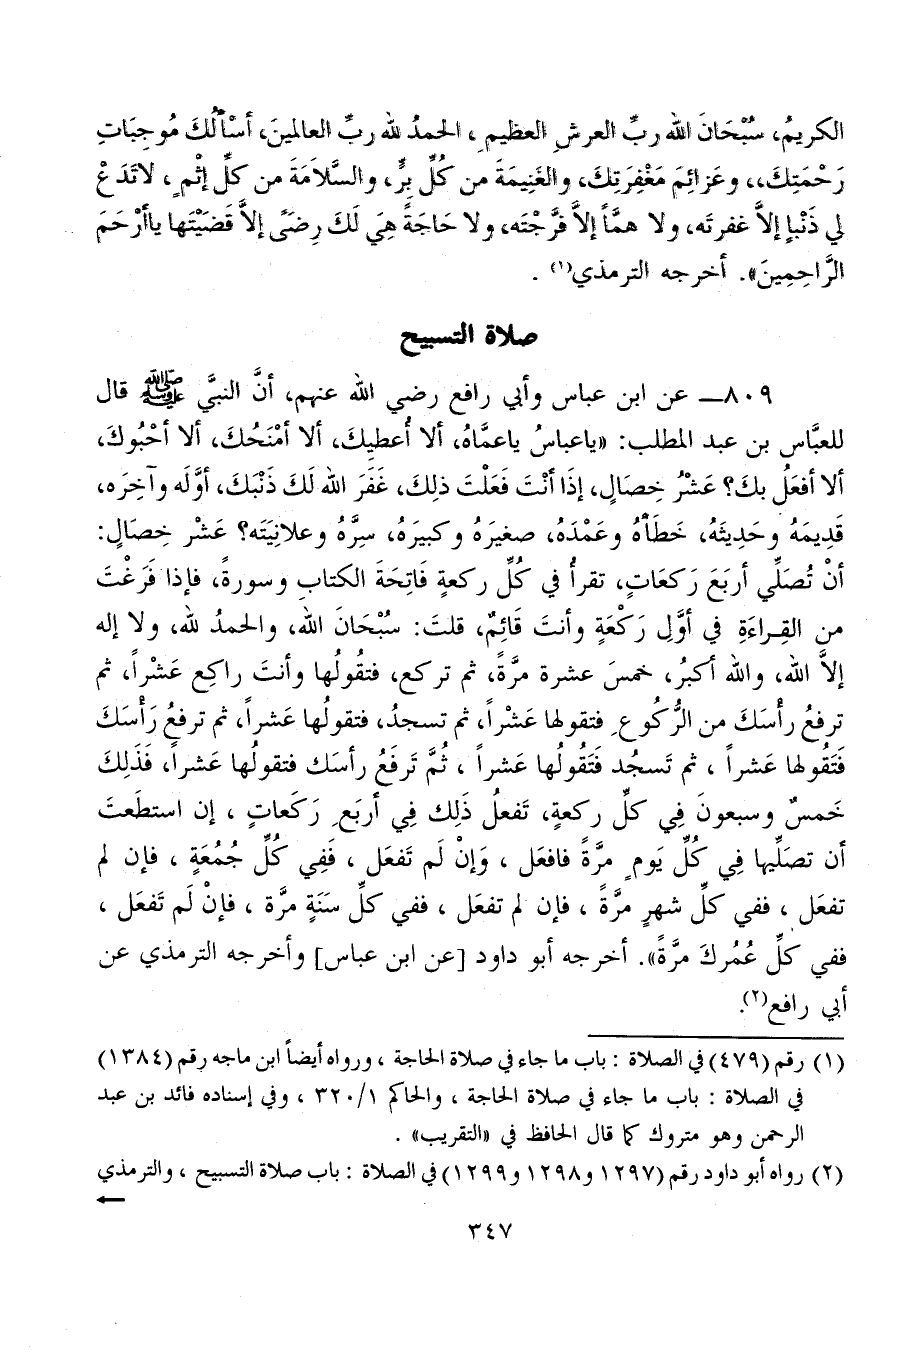 الكريمُ، سُبْحَانَ الله ربِّ العرشِ العظيمِ، الحمدُ لله ربِّ العالمينَ، أسْأَلُكَ مُوجِبَاتِ
رَحْمَتِكَ،، وعَزائِمَ مَغْفِرَتِكَ، والغَنِيمَةَ من كُلِّ بِرٍّ، والسَّلاَمَةَ من كلِّ إثْمٍ، لاتَدَعْ
لي ذَنْباٍ إلاَّ غفرتَه، ولا همَّاً إلاَّ فرَّجْتَه، ولا حَاجَةً هِيَ لَكَ رِضَىً إلاَّ قَضَيْتَها ياأرْحَمَ
الرَّاحِمِينَ». أخرجه الترمذي(١) .
صلاة التسبيح
٨٠٩ـ عن ابن عباس وأبي رافع رضي الله عنهم، أنَّ النبيَّ ﷺ قال
للعبَّاس بن عبد المطلب: «ياعباسُ ياعمَّاهُ، ألا أُعطيكَ، ألا أمْنَحُكَ، ألا أحْبُوكَ،
ألا أفعَلُ بكَ؟ عَشْرُ خِصَالٍ، إذَا أنْتَ فَعَلْتَ ذلِكَ، غَفَرَ الله لَكَ ذَنْبَكَ، أوَّلَه وآخِرَه،
قَدِيمَهُ وحَدِيثَهُ، خَطَأَهُ وعَمْدَهُ، صغيرَهُ وكبيرَهُ، سِرَّهُ وعلانِيَتَه؟ عَشْر خِصالٍ:
أنْ تُصَلِّي أربَعَ رَكَعَاتٍ، تقرأُ في كُلِّ ركعةٍ فَاتِحَةَ الكتابِ وسورةً، فإذا فَرَغْتَ
من القِراءَةِ في أوَّلِ رَكْعَةٍ وأنتَ قَائِمٌ، قلتَ: سُبْحَانَ الله، والحمدُ لله، ولا إله
إلاَّ الله، والله أكبرُ، خمسَ عشرة مرَّةً، ثم تركع، فتقُولُها وأنتَ راكِع عَشْراً، ثم
ترفعُ رأْسَكَ من الرُّكوعِ فتقولها عَشْراً، ثم تسجدُ، فتقولُها عَشراً، ثم ترفعُ رَأْسَكَ
فَتَقُولها عَشراً ، ثم تَسجُد فَتَقُولُها عَشراً ، ثُمَّ تَرفَعُ رأسَك فتقولُها عَشراً، فَذَلِكَ
خَمسٌ وسبعونَ فِي كلِّ ركعةٍ، تَفعلُ ذَلِك فِي أربَعِ رَكَعاتٍ ، إن استطَعتَ
أن تصَلِّيها فِي كُلِّ يَومٍ مرَّةً فافعَل ، وَإنْ لَم تَفعَل ، فَفِي كُلِّ جُمُعَةٍ ، فإن لم
تفعَل ، ففي كلِّ شهرٍ مرَّةً ، فإن لم تفعَل ، ففي كلِّ سَنَةٍ مرَّة ، فإنْ لَم تَفعَل ،
ففي كلِّ عُمُركَ مرَّةً». أخرجه أبو داود [عن ابن عباس] وأخرجه الترمذي عن
أبي رافع(٢).
(١) رقم (٤٧٩) في الصلاة : باب ما جاء في صلاة الحاجة ، ورواه أيضاً ابن ماجه رقم (١٣٨٤)
في الصلاة : باب ما جاء في صلاة الحاجة ، والحاكم ٣٢٠/١ ، وفي إسناده فائد بن عبد
الرحمن وهو متروك كما قال الحافظ في «التقريب» .
(٢) رواه أبو داود رقم (١٢٩٧ و١٢٩٨ و١٢٩٩) في الصلاة : باب صلاة التسبيح ، والترمذي
٣٤٧